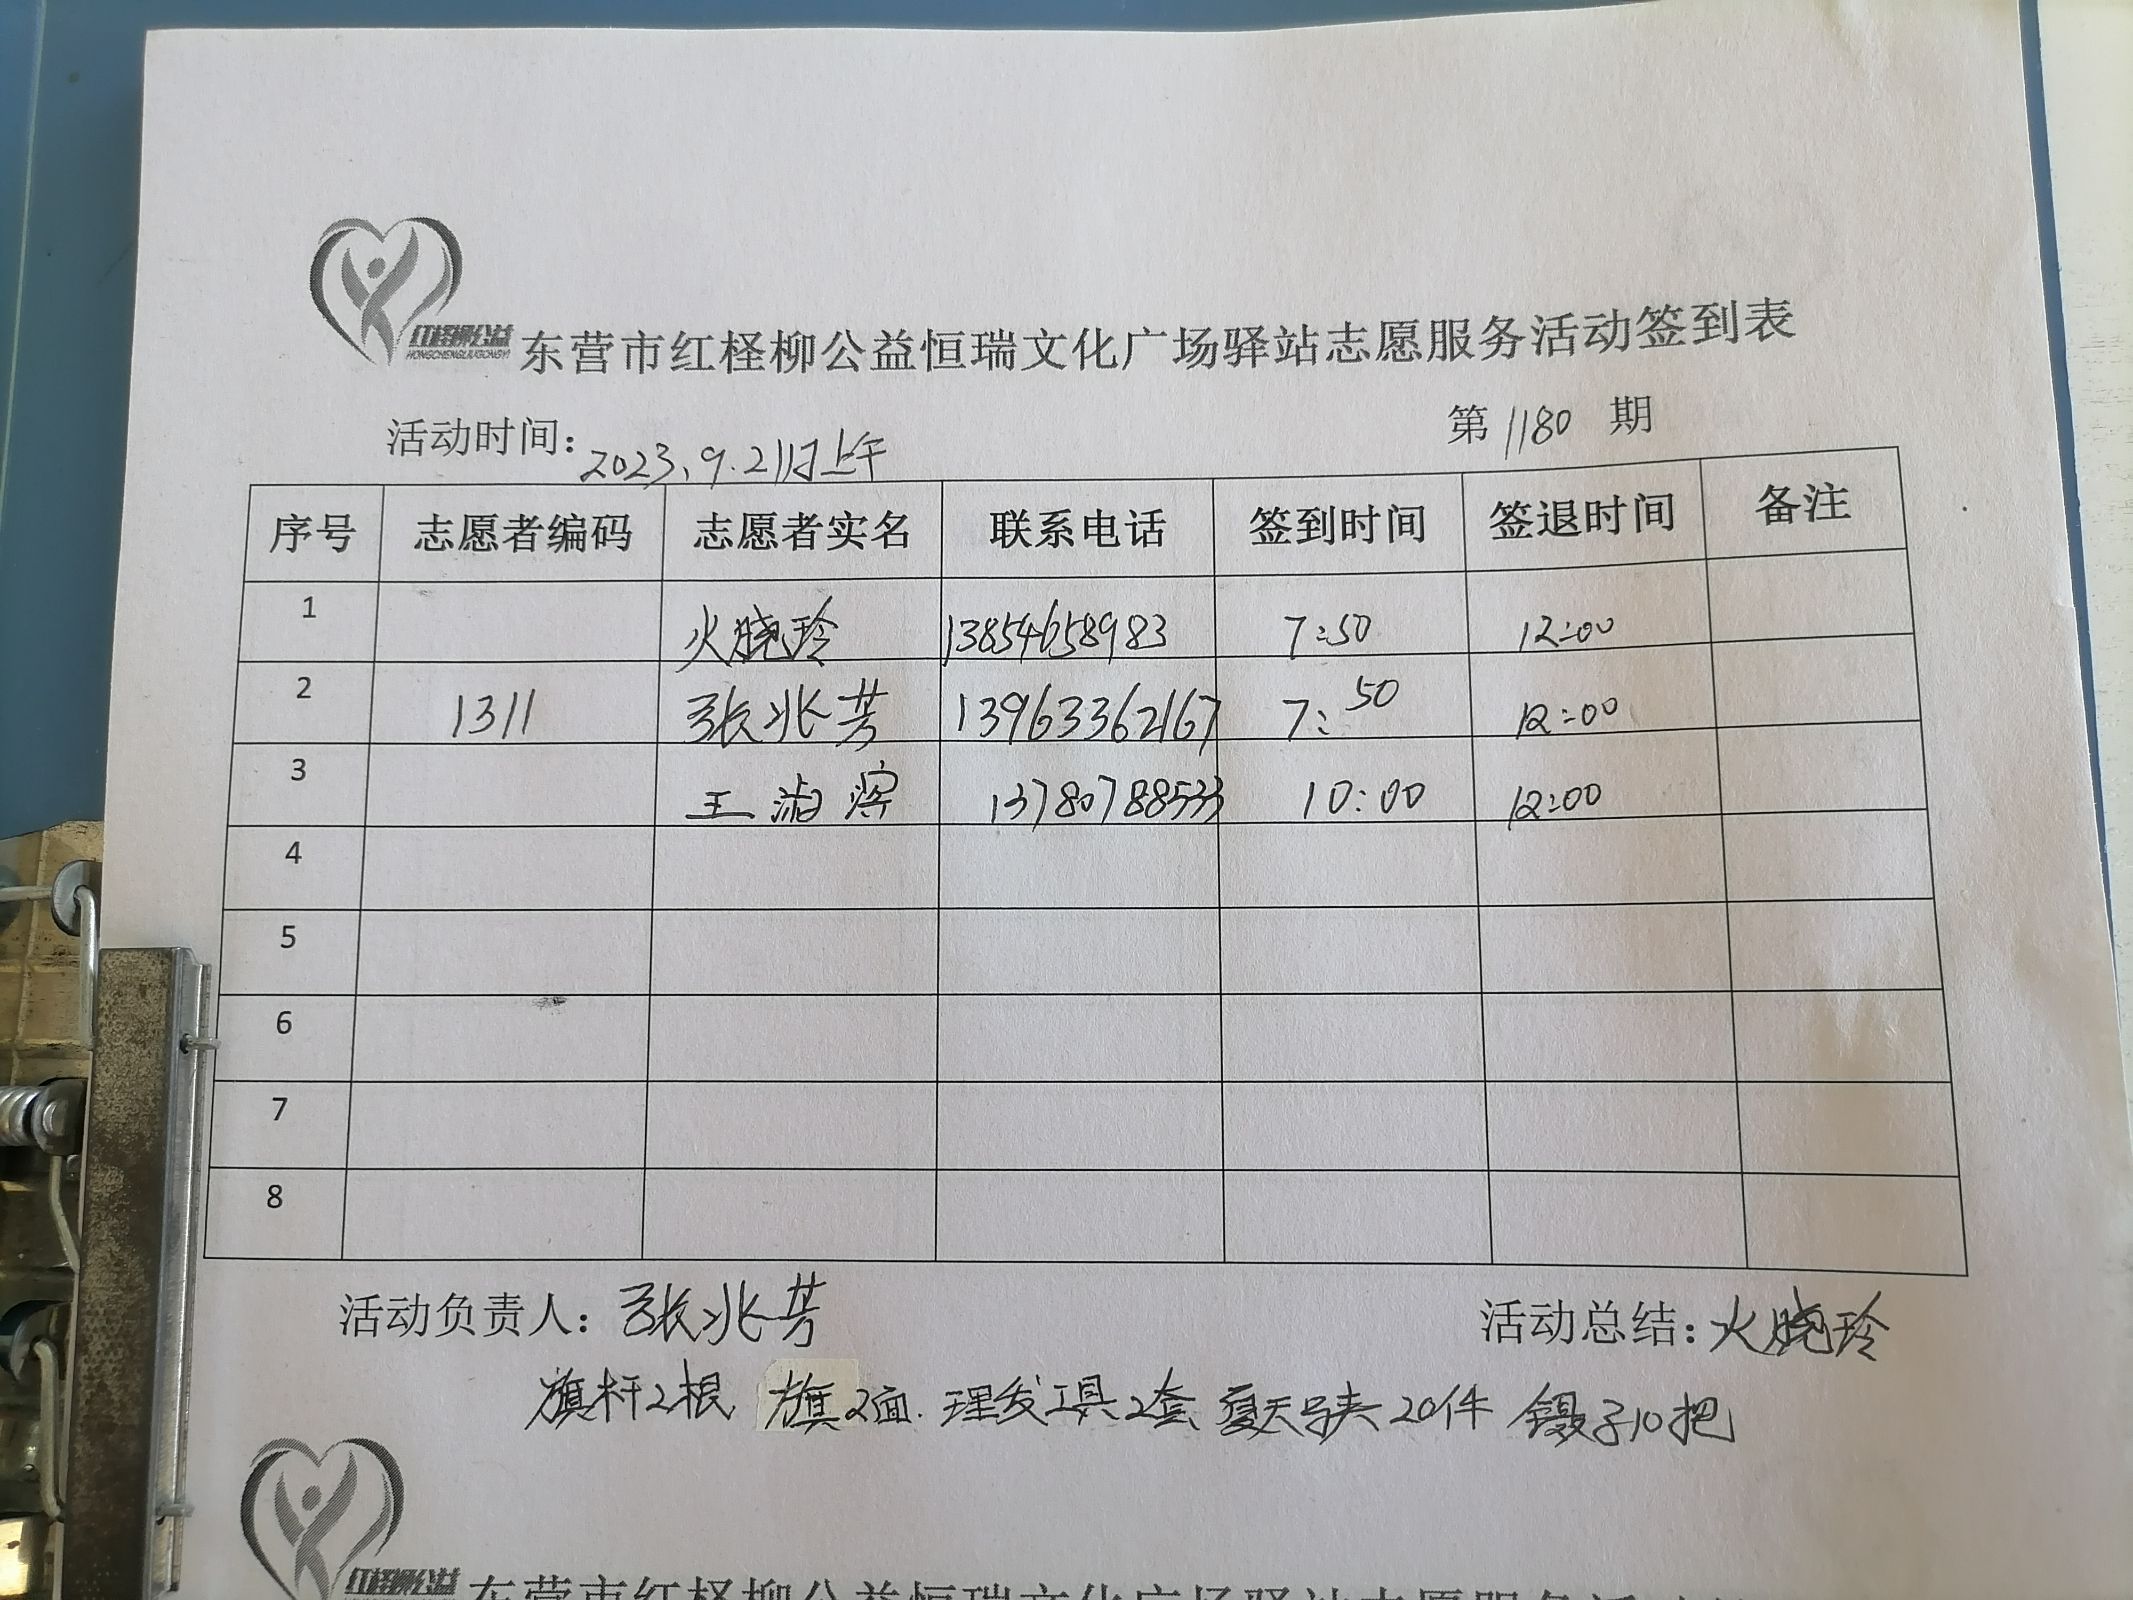 红柽柳公益
HONGCHENGLIUGONGYI
东营市红柽柳公益恒瑞文化广场驿站志愿服务活动签到表
活动时间：2023.9.21日上午 第1180期
序号 志愿者编码 志愿者实名 联系电话 签到时间 签退时间 备注
1 火晓玲 13854658983 7:50 12:00
2 1311 张兆芳 13963362167 7:50 12:00
3 王淑 13780788533 10:00 12:00
4
5
6
7
8
活动负责人：张兆芳 活动总结：火晓玲
旗杆2根 旗2面. 理发工具2套 夏天马夹20件 镊子10把
红柽柳公益
东营市红柽柳公益恒瑞文化广场驿站志愿服务活动